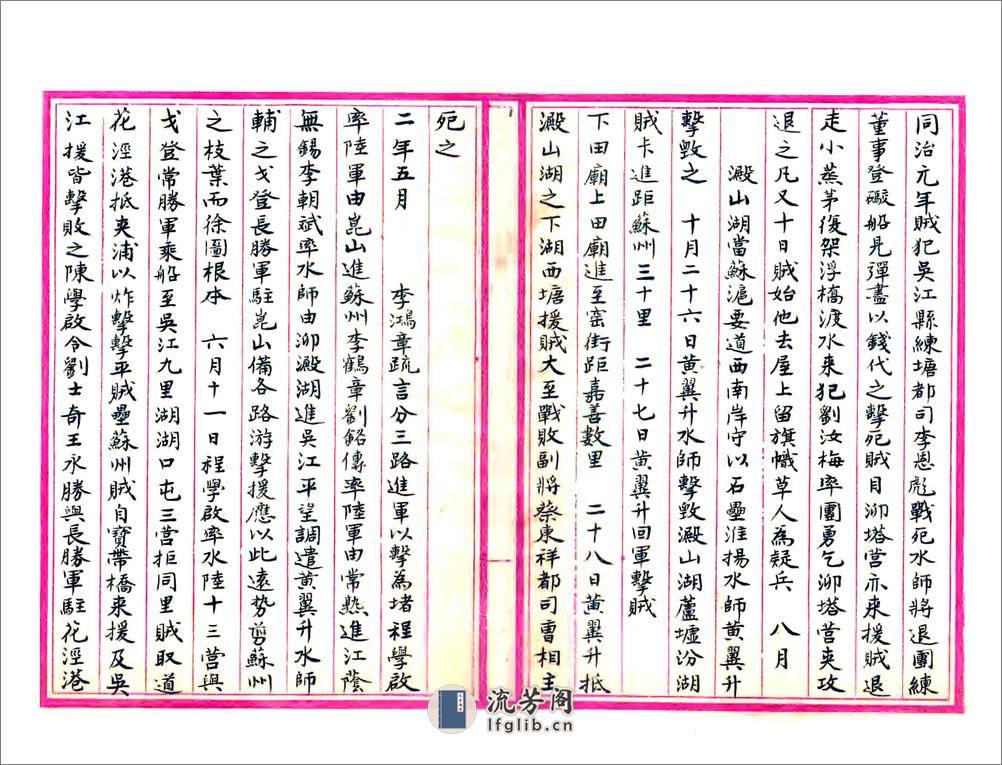 同治元年賊犯吳江縣練塘都司李恩彪戰死水師將退團練
董事登礮船見彈盡以錢代之擊死賊目泖塔營亦來援賊退
走小蒸茅復架浮橋渡水來犯劉汝梅率團勇乞泖塔營夾攻
退之凡又十日賊始他去屋上留旗幟草人為疑兵　八月
澱山湖當蘇滬要道西南岸守以石壘淮揚水師黃翼升
擊毀之　十月二十六日黃翼升水師擊毀澱山湖蘆墟汾湖
賊卡進距蘇州三十里　二十七日黃翼升回軍擊賊
下田廟上田廟進至窑街距嘉善數里　二十八日黃翼升抵
澱山湖之下湖西塘援賊大至戰敗副將蔡東祥都司曹相主
死之
二年五月　李鴻章疏言分三路進軍以擊為堵程學啟
率陸軍由崑山進蘇州李鶴章劉銘傳率陸軍由常熟進江陰
無錫李朝斌率水師由泖澱湖進吳江平望調遣黃翼升水師
輔之戈登長勝軍駐崑山備各路游擊援應以此遠勢剪蘇州
之枝葉而徐圖根本　六月十一日程學啟率水陸十三營與
戈登常勝軍乘船至吳江九里湖湖口屯三營拒同里賊取道
花涇港抵夾浦以炸擊擊平賊壘蘇州賊自寶帶橋來援及吳
江援皆擊敗之陳學啟令劉士奇王永勝與長勝軍駐花涇港
流芳阁
lfglib.cn